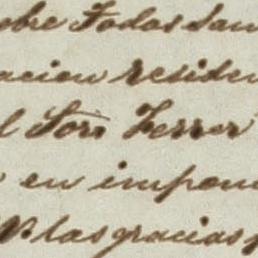 bre Todos San
acion residen
l Sor. Ferrer
en impon
las gracias